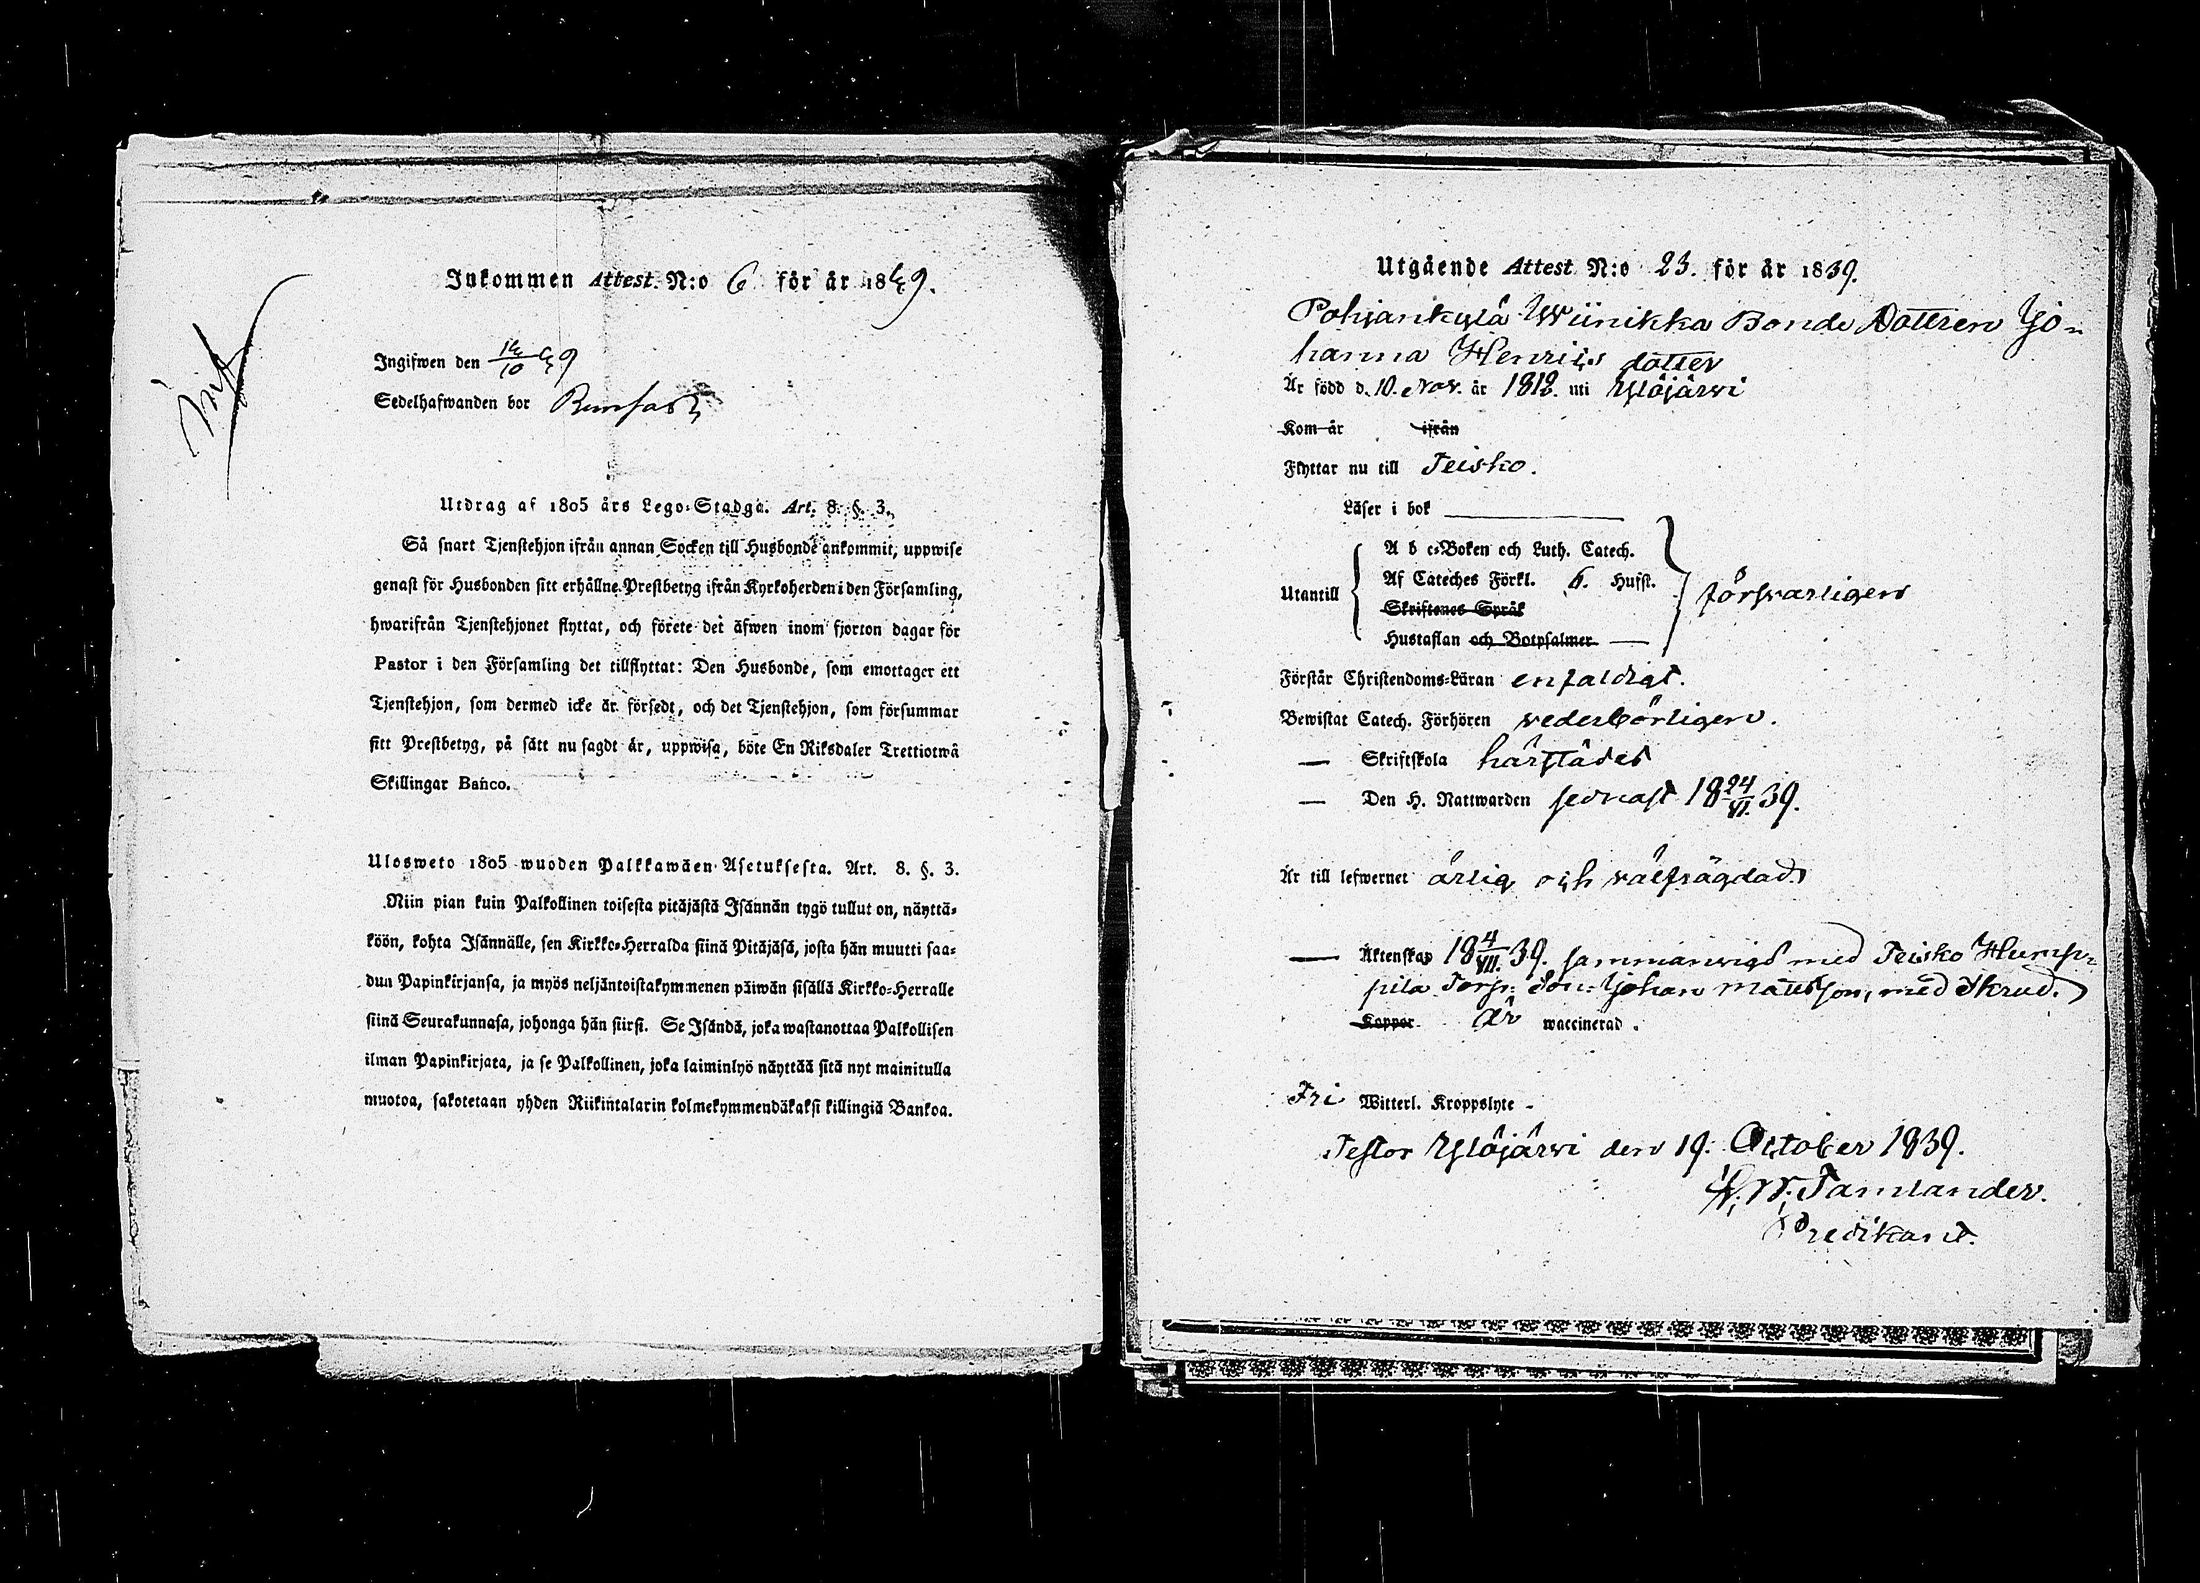 Inkommen Attest. N:o 6 för år 1849.
Ingifwen den 14/10 49
Sedelhafwanden bor
Utdrag af 1805 års Lego-Stadga. Art. 8. §. 3.
Så snart Tjenstehjon ifrån annan Socken till Husbonde ankommit, uppwise
genast för Husbonden sitt erhållne Prestbetyg ifrån Kyrkoherden i den Församling,
hwarifrån Tjenstehjonet flyttat, och förete det äfwen inom fjorton dagar för
Pastor i den Församling det tillflyttat: Den Husbonde, som emottager ett
Tjenstehjon, som dermed icke är försedt, och det Tjenstehjon, som försummar
sitt Prestbetyg, på sätt nu sagdt är, uppwisa, böte En Riksdaler Trettiotwå
Skillingar Banco.
Ulosweto 1805 wuoden Palkkawäen Asetuksesta. Art. 8. §. 3.
Niin pian kuin Palkollinen toisesta pitäjästä Isännän tygö tullut on, näyttä-
köön, kohta Isännälle, sen Kirkko-Herralda siinä Pitäjäsä, josta hän muutti saa-
dun Papinkirjansa, ja myös neljäntoistakymmenen päiwän sisällä Kirkko-Herralle
siinä Seurakunnasa, johonga hän siirsi. Se Isändä, joka wastanottaa Palkollisen
ilman Papinkirjata, ja se Palkollinen, joka laiminlyö näyttää sitä nyt mainitulla
muotoa, sakotetaan yhden Riikintalarin kolmekymmendäkaksi killingiä Bankoa.
Utgående Attest N:o 23. för år 1839.
Pohjankylä Wiinikka Bonde Dottren Jo-
hanna Henrics dotter
Är född d. 10. Nov. år 1812. uti Ylöjärwi
Kom år ifrån
Flyttar nu till Teisko.
Läser i bok
Utantill
A b c-Boken och Luth. Catech.
Af Cateches Förkl. 6. Hufst.
Skriftenes Språk
Hustaflan och Botpsalmer
försvarligen
Förstår Christendoms-Läran enfaldigt.
Bewistat Catech. Förhören vederbörligen.
— Skriftskola härstädes
— Den H. Nattwarden sednast 18 24/VI. 39.
Är till lefwernet ärlig och välfrägdad
— Äktenskap 18 4/VII. 39. sammanvigd med Teisko Hump-
pila Torp. Son: Johan Mattsson, med Skrud.
Koppor är waccinerad.
Fri Witterl. Kroppslyte
Testor Ylöjärwi den 19. October 1839.
Tamlander.
Predikant.